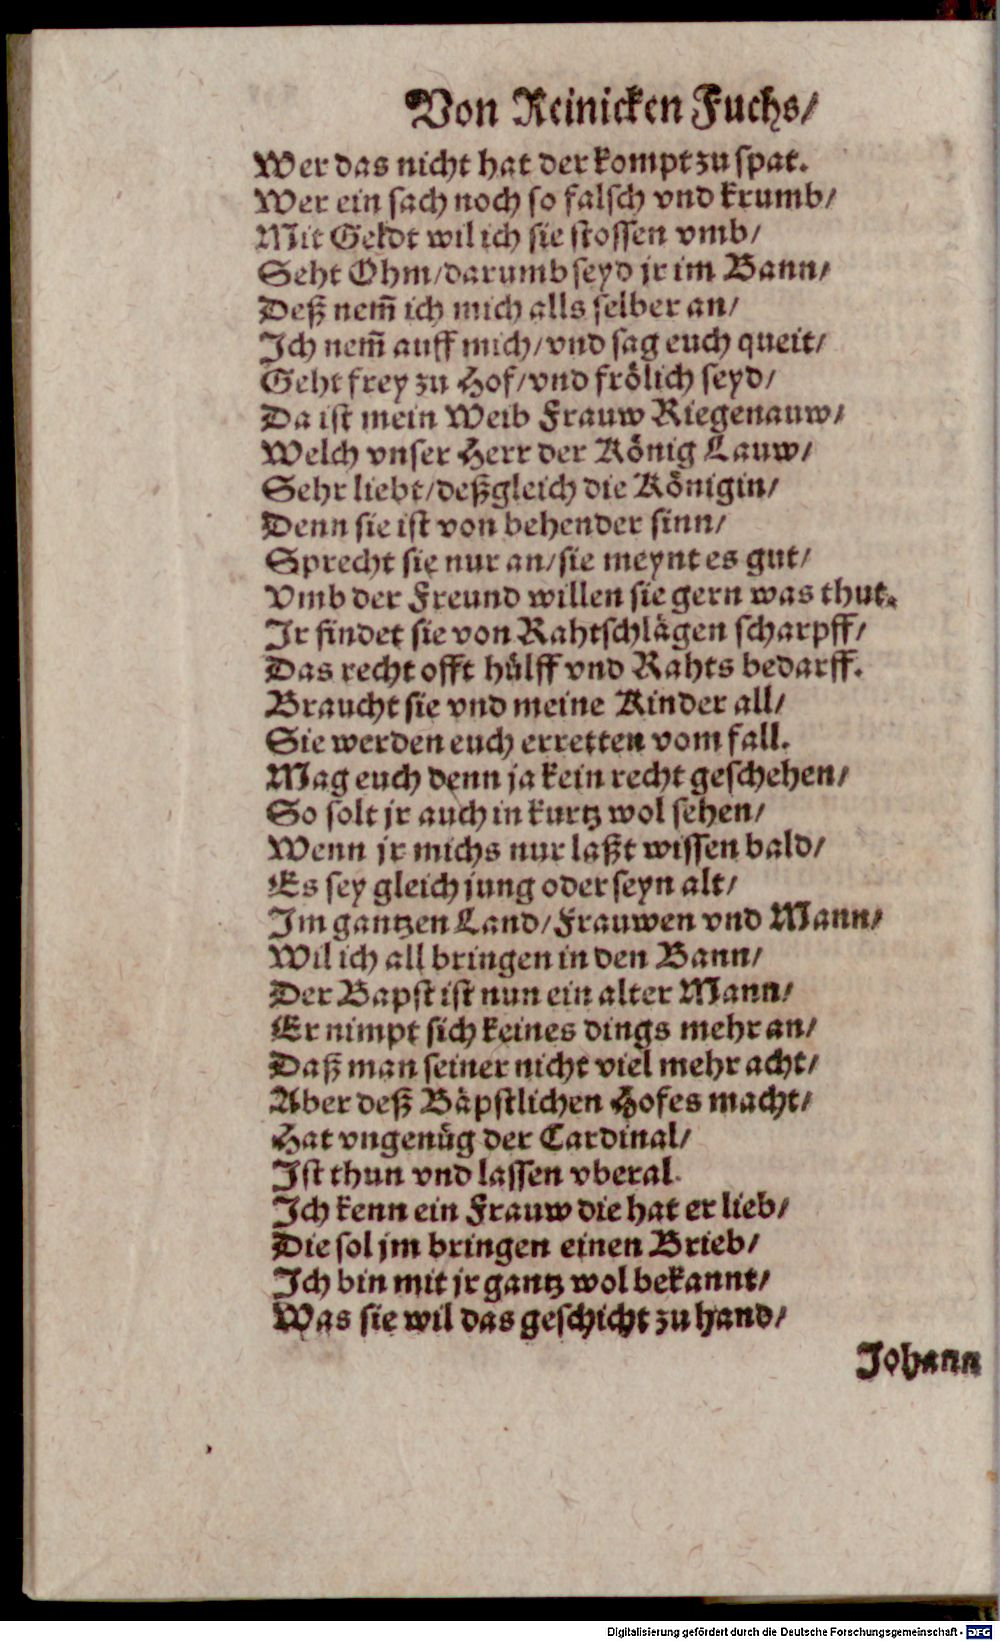 Von Reinicken Fuchs/
Wer das nicht hat der kompt zu spat.
Wer ein sach noch so falsch vnd krumb/
Mit Geldt wil ich sie stossen vmb/
Seht Ohm/darumb seyd jr im Bann/
Deß nem̃ ich mich alls selber an/
Ich nem̃ auff mich/vnd sag euch queit/
Geht frey zu Hof/vnd frölich seyd/
Da ist mein Weib Frauw Riegenauw/
Welch vnser Herr der König Lauw/
Sehr liebt/deßgleich die Königin/
Denn sie ist von behender sinn/
Sprecht sie nur an/sie meynt es gut/
Vmb der Freund willen sie gern was thut.
Ir findet sie von Rahtschlägen scharpff/
Das recht offt hülff vnd Rahts bedarff.
Braucht sie vnd meine Kinder all/
Sie werden euch erretten vom fall.
Mag euch denn ja kein recht geschehen/
So solt jr auch in kurtz wol sehen/
Wenn jr michs nur laßt wissen bald/
Es sey gleich jung oder seyn alt/
Im gantzen Land/Frauwen vnd Mann/
Wil ich all bringen in den Bann/
Der Bapst ist nun ein alter Mann/
Er nimpt sich keines dings mehr an/
Daß man seiner nicht viel mehr acht/
Aber deß Bäpstlichen Hofes macht/
Hat vngenüg der Cardinal/
Ist thun vnd lassen vberal.
Ich kenn ein Frauw die hat er lieb/
Die sol jm bringen einen Brieb/
Ich bin mit jr gantz wol bekannt/
Was sie wil das geschicht zu hand/
Johann
Digitalisierung gefördert durch die Deutsche Forschungsgemeinschaft - DFG